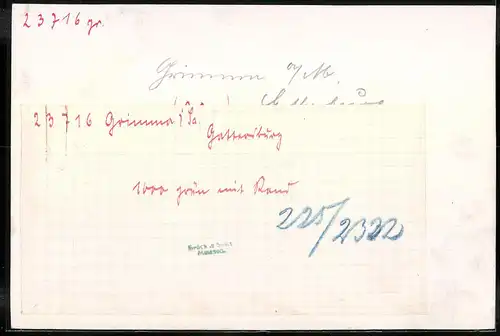 23716 gr.
Grimma a/M.
23716 Grimma i/Sa.
Gattersburg
1000 grün mit Rand
225/2322
Brück & Sohn
MEISSEN